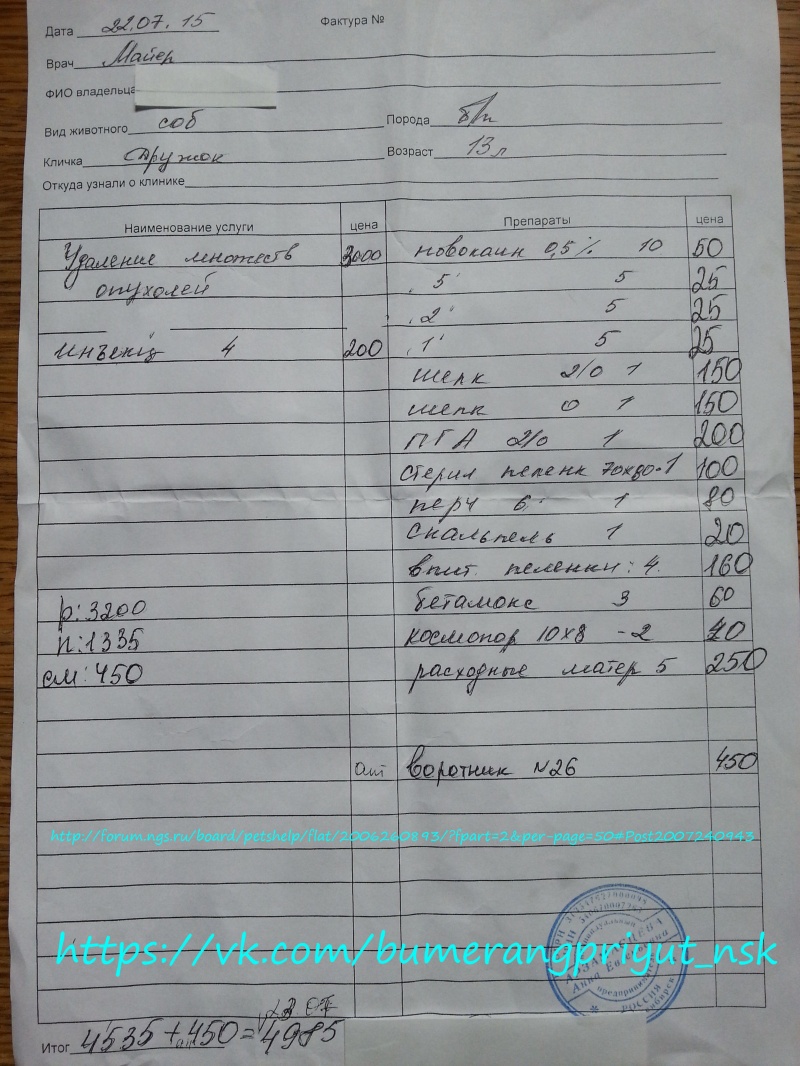 Фактура №
Дата 22.07.15
Врач Майер
ФИО владельца
Вид животного соб Порода б/п
Кличка Дружок Возраст 13 л
Откуда узнали о клинике
Наименование услуги цена Препараты цена
Удаление множеств 3000 новокаин 0,5% 10 50
опухолей "5" 5 25
"2" 5 25
инъекц 4 200 "1" 5 25
шелк 2/0 1 150
шелк 0 1 150
ПГА 2/0 1 200
стерил пеленк 70х80-1 100
перч 6 1 80
скальпель 1 20
впит. пеленки: 4. 160
р: 3200 бетамокс 3 60
п: 1335 космопор 10х8 -2 40
см: 450 расходные матер 5 250
воротник N26 450
http://forum.ngs.ru/board/petshelp/flat/2006260893/?fpart=2&per-page=50#Post2007240943
https://vk.com/bumerangpriyut_nsk
Анна
предприниматель
РОССИЯ
Итог 4535 + 450 = 4985